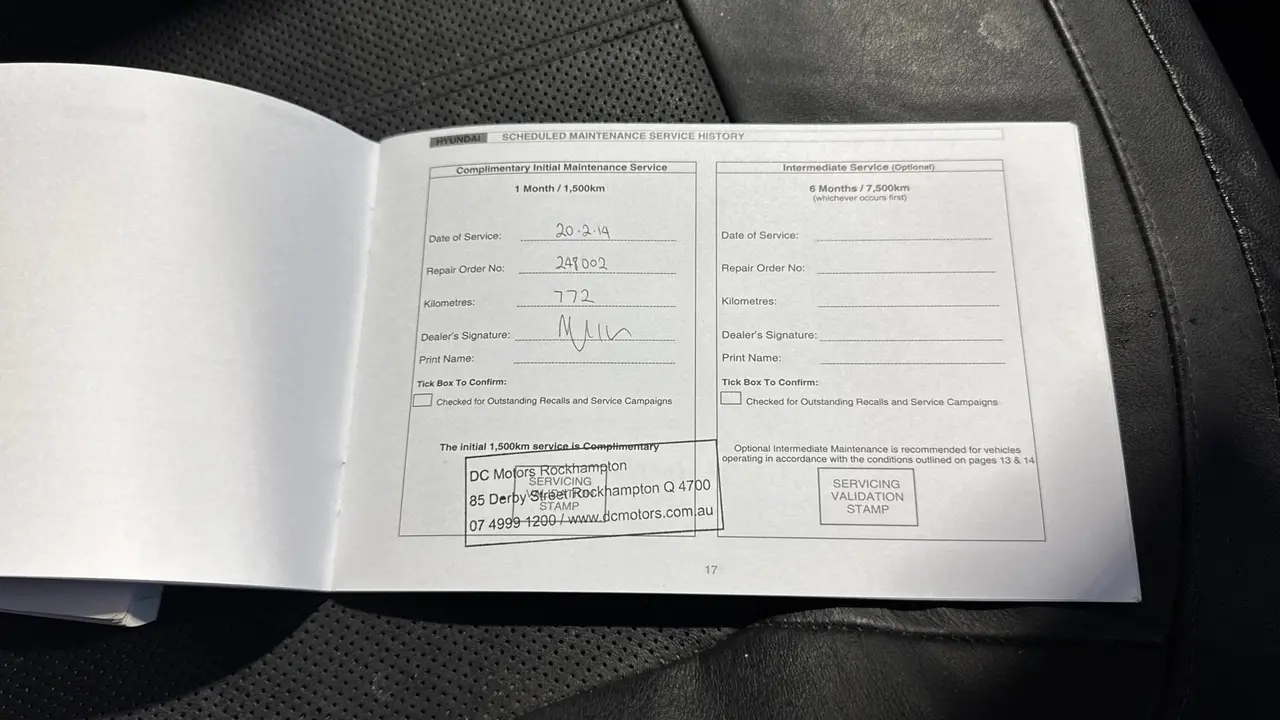 HYUNDAI SCHEDULED MAINTENANCE SERVICE HISTORY
Complimentary Initial Maintenance Service
1 Month / 1,500km
Date of Service: 20.2.14
Repair Order No: 248002
Kilometres: 772
Dealer's Signature:
Print Name:
Tick Box To Confirm:
Checked for Outstanding Recalls and Service Campaigns
The initial 1,500km service is Complimentary
SERVICING
VALIDATION
STAMP
DC Motors Rockhampton
85 Derby Street Rockhampton Q 4700
07 4999 1200 / www.dcmotors.com.au
Intermediate Service (Optional)
6 Months / 7,500km
(whichever occurs first)
Date of Service:
Repair Order No:
Kilometres:
Dealer's Signature:
Print Name:
Tick Box To Confirm:
Checked for Outstanding Recalls and Service Campaigns
Optional Intermediate Maintenance is recommended for vehicles
operating in accordance with the conditions outlined on pages 13 & 14
SERVICING
VALIDATION
STAMP
17